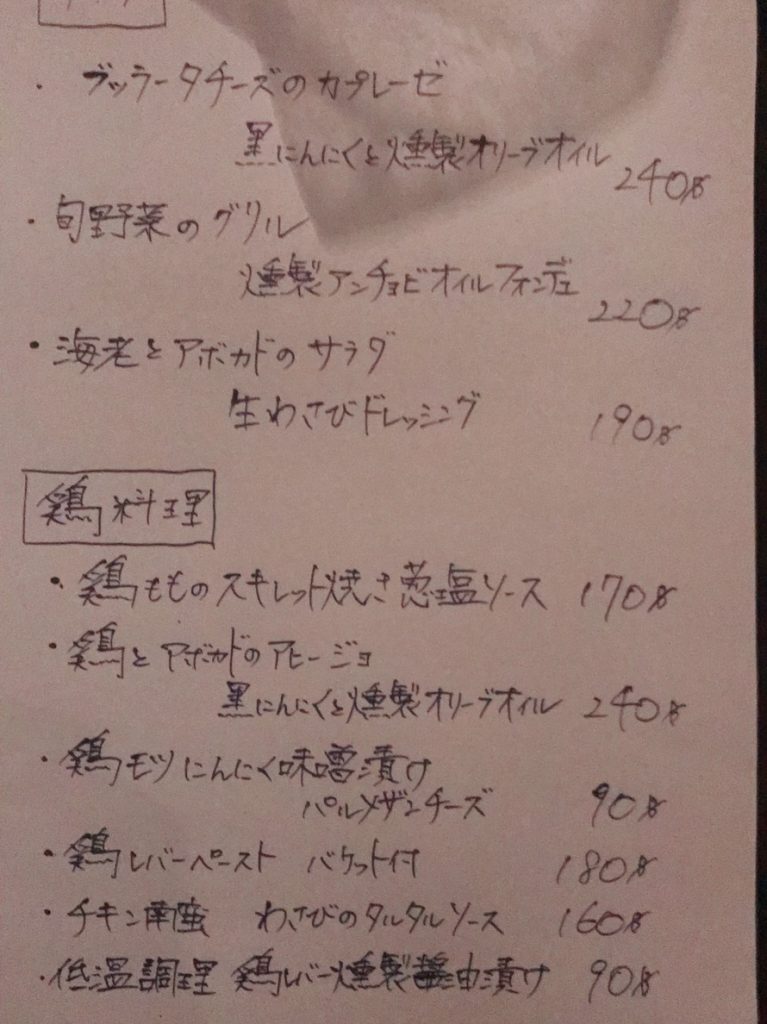 ・ブッラータチーズのカプレーゼ
黒にんにくと燻製オリーブオイル 240
・旬野菜のグリル
燻製アンチョビオイルフォンデュ 220
・海老とアボカドのサラダ
生わさびドレッシング 190
鶏料理
・鶏もものスキレット焼き葱塩ソース 170
・鶏とアボカドのアヒージョ
黒にんにくと燻製オリーブオイル 240
・鶏モツにんにく味噌漬け
パルメザンチーズ 90
・鶏レバーペースト バケット付 180
・チキン南蛮 わさびのタルタルソース 160
・低温調理 鶏レバー燻製醤油漬け 90